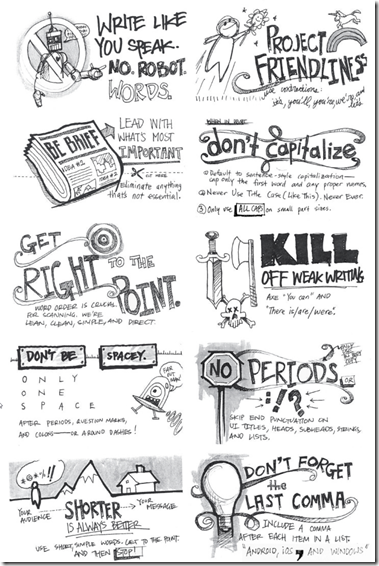 WRITE LIKE
YOU SPEAK.
NO. ROBOT.
WORDS.
PROJECT
FRIENDLINESS
use contractions:
it's, you'll, you're, we're, and
let's
BE BRIEF
IDEA #1
IDEA #2
LEAD WITH
WHAT'S MOST
IMPORTANT
Eliminate anything
that's not essential.
WHEN IN DOUBT
don't capitalize
① Default to sentence-style capitalization—
cap only the first word and any proper names.
② Never Use Title Case (Like This). Never Ever.
③ Only use ALL CAPS on small part sizes.
GET
RIGHT TO THE
POINT.
WORD ORDER IS CRUCIAL
FOR SCANNING. WE'RE
LEAN, CLEAN, SIMPLE, AND DIRECT.
KILL
OFF WEAK WRITING
AXE "You can" AND
"There is/are/were".
DON'T BE SPACEY.
ONLY
ONE
SPACE
FAR OUT
MAN!
AFTER PERIODS, QUESTION MARKS,
AND COLONS—OR AROUND DASHES!
NO PERIODS
OR
: / ! ?
SKIP END PUNCTUATION ON
UI TITLES, HEADS, SUBHEADS,
AND LISTS.
@*#!!
YOUR
AUDIENCE
SHORTER
IS ALWAYS BETTER
YOUR
MESSAGE
USE SHORT, SIMPLE WORDS. GET TO THE POINT.
AND THEN STOP!
DON'T FORGET
the
LAST COMMA
INCLUDE A COMMA
AFTER EACH ITEM IN A LIST
"ANDROID, iOS, AND WINDOWS"